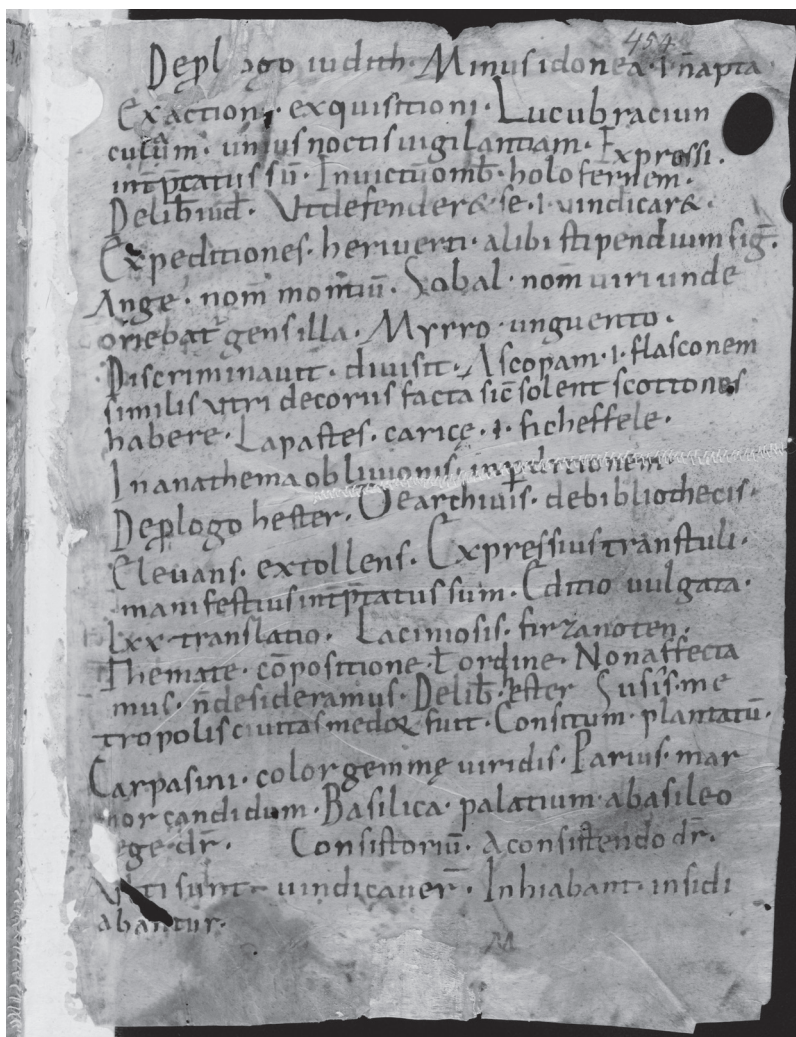 454
De ꝓl ogo iudith · Minus idonea · ł n̄ apta
Exactioni · exquisitioni · Lucubraciun
culam · unius noctis uigilantiam · Expressi ·
int̄p̄tatus sū · Inuictū omb̄ · holofernem ·
De lib̄ iud̄ · Vt defender& se · ł uindicar& ·
Expeditiones · heriuerti · alibi stipendium siḡ ·
Ange · nom̄ montiū · Sobal · nom̄ uiri unde
oriebat̄ gens illa · Myrro · unguento ·
Discriminauit · diuisit · Ascopam · ł · flasconem
similis utri decorius facta sic̄ solent scottones
habere · Lapastes · caricę · ł · ficheffele ·
In anathema obliuionis · in ꝑditionem ·
De ꝓlogo hester · De archiuis · de bibliothecis ·
Eleuans · extollens · Expressius transtuli ·
manifestius int̄p̄tatus sum · Editio uulgata ·
Lxx translatio · Laciniosis · firzanoten ·
Themate · cōpositione · ł ordine · Non affecta
mus · n̄ desideramus · De lib̄ · ester Susis · me
tropolis ciuitas medoꝝ fuit · Consitum · plantatū ·
Carpasini · color gemmę uiridis · Parius · mar
mor candidum · Basilica · palatium · a basileo
ege · dr̄ · Consistoriū · a consistendo dr̄ ·
sunt · uindicauer̄ · Inhiabant · insidi
abantur ·